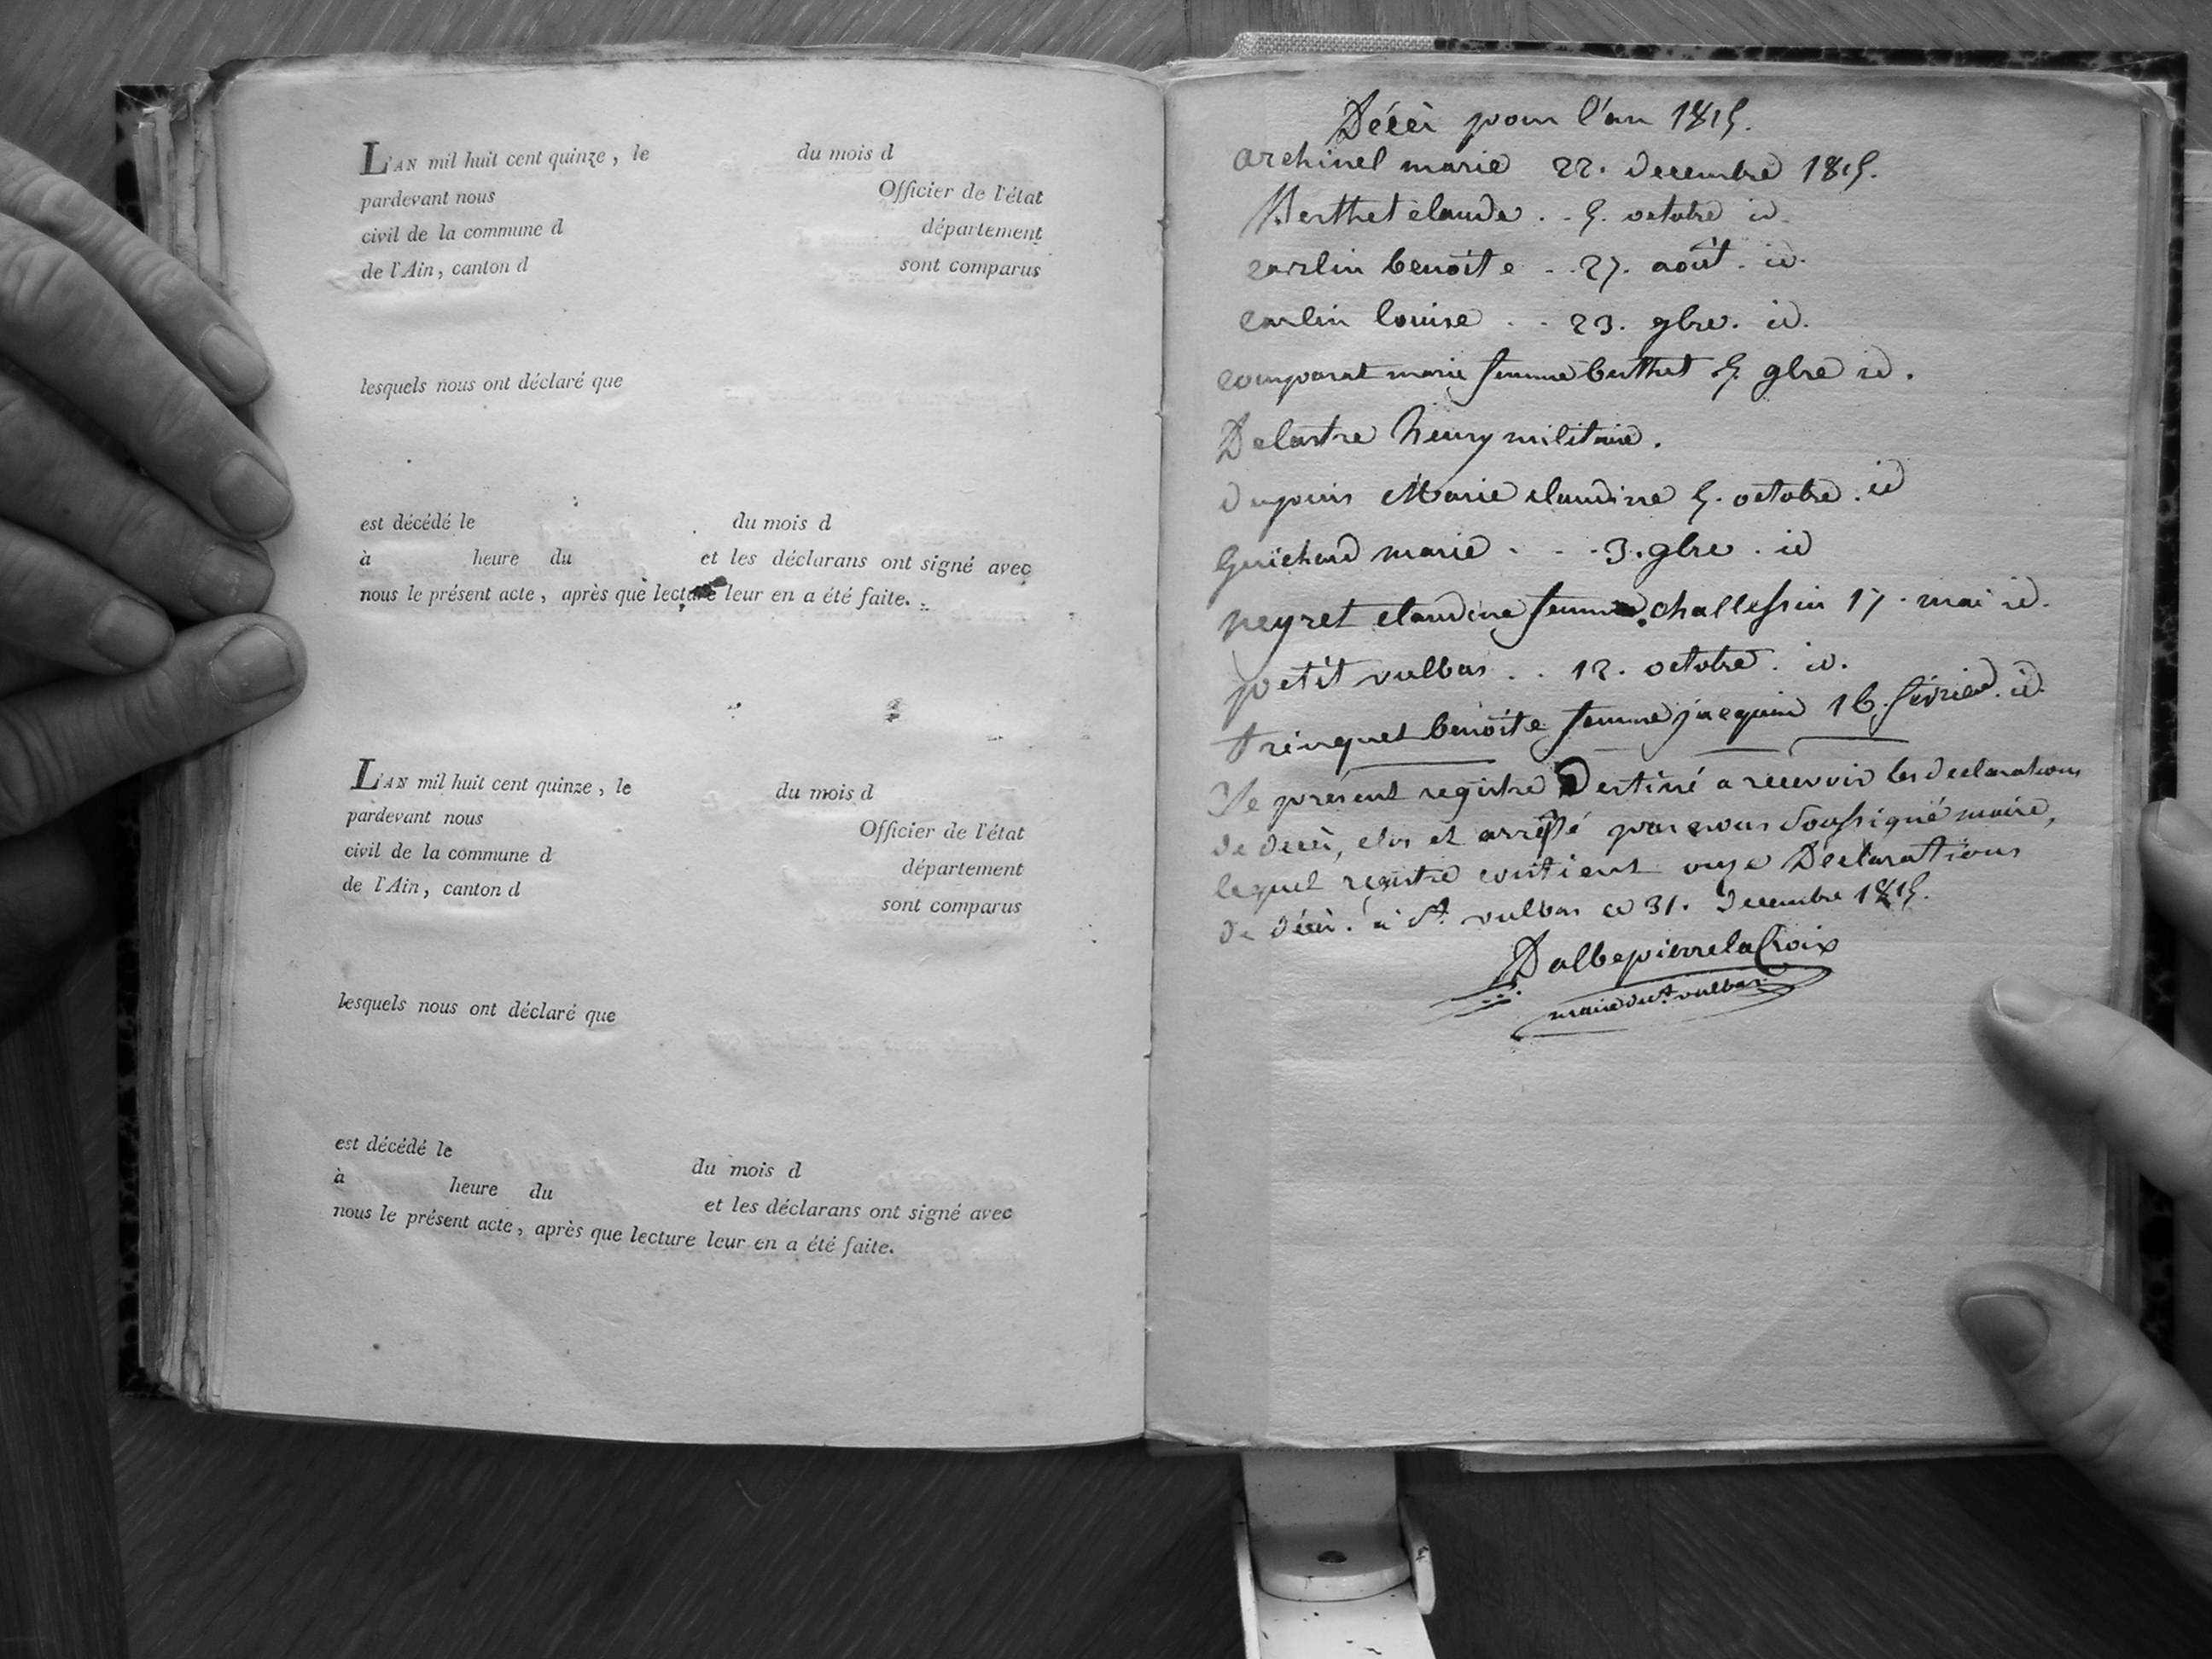 L'AN mil huit cent quinze, le du mois d
pardevant nous Officier de l'état
civil de la commune d département
de l'Ain, canton d sont comparus
lesquels nous ont déclaré que
est décédé le du mois d
à heure du et les déclarans ont signé avec
nous le présent acte, après que lecture leur en a été faite.
L'AN mil huit cent quinze, le du mois d
pardevant nous Officier de l'état
civil de la commune d département
de l'Ain, canton d sont comparus
lesquels nous ont déclaré que
est décédé le du mois d
à heure du et les déclarans ont signé avec
nous le présent acte, après que lecture leur en a été faite.
Décès pour l'an 1815.
archinel marie 22. decembre 1815.
Berthet claude . . 5. octobre id.
carlin benoite . . 27. août. id.
carlin louise . . 23. 9bre. id.
comparat marie femme berthet 5. 9bre id.
Delastre henry militaire.
dupuis Marie claudine 5. octobre. id
Guichard marie . . . 3. 9bre. id
neyret claudine femme challessin 17. mai id.
petit vulbas . . 12. octobre. id.
trinquet benoite femme jacquin 16. février. id.
Le présent registre Destiné a recevoir les declarations
de décès, clos et arrêté par nous Soussigné maire,
lequel registre contient onze Declarations
de décès. à St. vulbas ce 31. Decembre 1815.
Dalbepierrelacroix
maire de st. vulbas